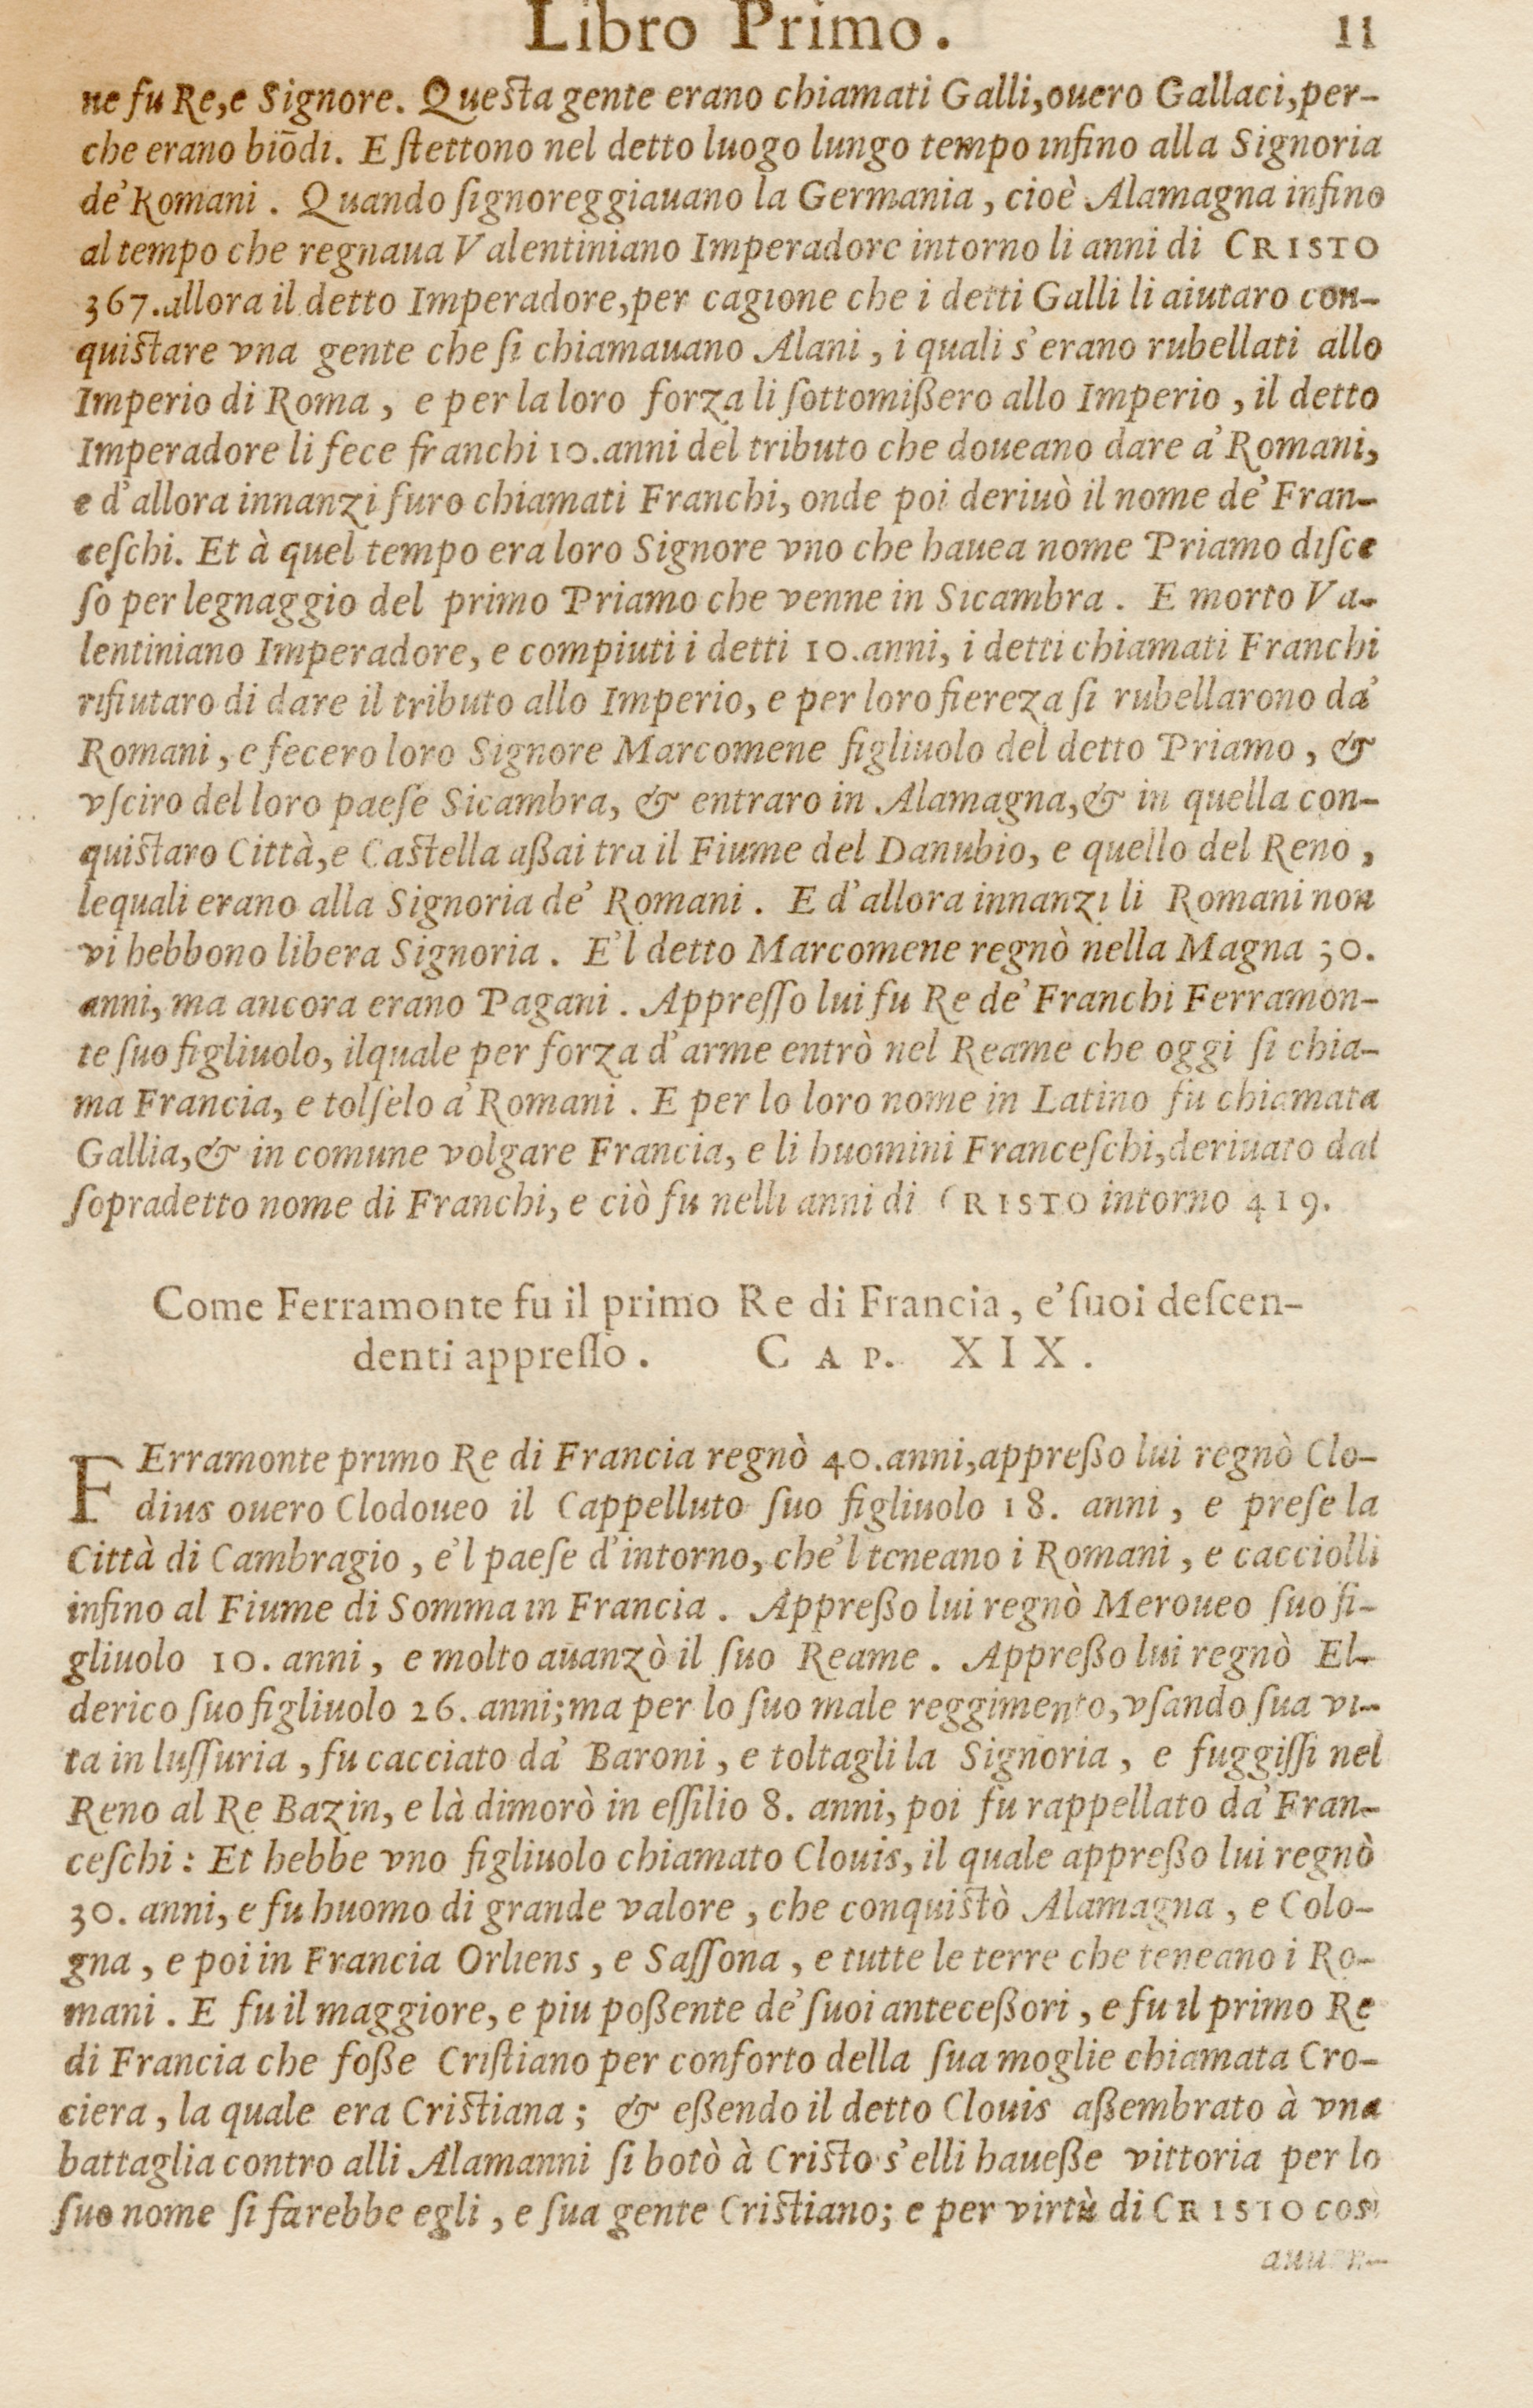 Libro Primo. 11
ne fu Re,e Signore. Queſta gente erano chiamati Galli,ouero Gallaci,per-
che erano biōdi. E ſtettono nel detto luogo lungo tempo infino alla Signoria
de' Romani . Quando ſignoreggiauano la Germania , cioè Alamagna infino
al tempo che regnaua Valentiniano Imperadore intorno li anni di CRISTO
367.allora il detto Imperadore,per cagione che i detti Galli li aiutaro con-
quiſtare vna gente che ſi chiamauano Alani , i quali s'erano rubellati allo
Imperio di Roma , e per la loro forza li ſottomißero allo Imperio , il detto
Imperadore li fece franchi 10.anni del tributo che doueano dare a' Romani,
e d'allora innanzi furo chiamati Franchi, onde poi deriuò il nome de' Fran-
ceſchi. Et à quel tempo era loro Signore vno che hauea nome Priamo diſce
ſo per legnaggio del primo Priamo che venne in Sicambra . E morto Va-
lentiniano Imperadore, e compiuti i detti 10.anni, i detti chiamati Franchi
rifiutaro di dare il tributo allo Imperio, e per loro fiereza ſi rubellarono da'
Romani , e fecero loro Signore Marcomene figliuolo del detto Priamo , &
vſciro del loro paeſe Sicambra, & entraro in Alamagna,& in quella con-
quiſtaro Città,e Caſtella aßai tra il Fiume del Danubio, e quello del Reno ,
lequali erano alla Signoria de' Romani . E d'allora innanzi li Romani non
vi hebbono libera Signoria . E'l detto Marcomene regnò nella Magna 30.
anni, ma ancora erano Pagani . Appreſſo lui fu Re de' Franchi Ferramon-
te ſuo figliuolo, ilquale per forza d'arme entrò nel Reame che oggi ſi chia-
ma Francia, e tolſelo a' Romani . E per lo loro nome in Latino fu chiamata
Gallia,& in comune volgare Francia, e li huomini Franceſchi,deriuato dal
ſopradetto nome di Franchi, e ciò fu nelli anni di CRISTO intorno 419.
Come Ferramonte fu il primo Re di Francia , e' ſuoi deſcen-
denti appreſſo . CAP. XIX.
FErramonte primo Re di Francia regnò 40.anni,appreßo lui regnò Clo-
dius ouero Clodoueo il Cappelluto ſuo figliuolo 18. anni , e preſe la
Città di Cambragio , e'l paeſe d'intorno, che'l teneano i Romani , e cacciolli
infino al Fiume di Somma in Francia . Appreßo lui regnò Meroueo ſuo fi-
gliuolo 10. anni , e molto auanzò il ſuo Reame . Appreßo lui regnò El-
derico ſuo figliuolo 26. anni;ma per lo ſuo male reggimento,vſando ſua vi-
ta in luſſuria , fu cacciato da' Baroni , e toltagli la Signoria , e fuggiſſi nel
Reno al Re Bazin, e là dimorò in eſſilio 8. anni, poi fu rappellato da' Fran-
ceſchi : Et hebbe vno figliuolo chiamato Clouis, il quale appreßo lui regnò
30. anni, e fu huomo di grande valore , che conquiſtò Alamagna , e Colo-
gna , e poi in Francia Orliens , e Saſſona , e tutte le terre che teneano i Ro-
mani . E fu il maggiore, e piu poßente de' ſuoi anteceßori , e fu il primo Re
di Francia che foße Criſtiano per conforto della ſua moglie chiamata Cro-
ciera , la quale era Criſtiana ; & eßendo il detto Clouis aßembrato à vna
battaglia contro alli Alamanni ſi botò à Criſto s'elli haueße vittoria per lo
ſuo nome ſi farebbe egli , e ſua gente Criſtiano; e per virtù di CRISTO così
auuen-